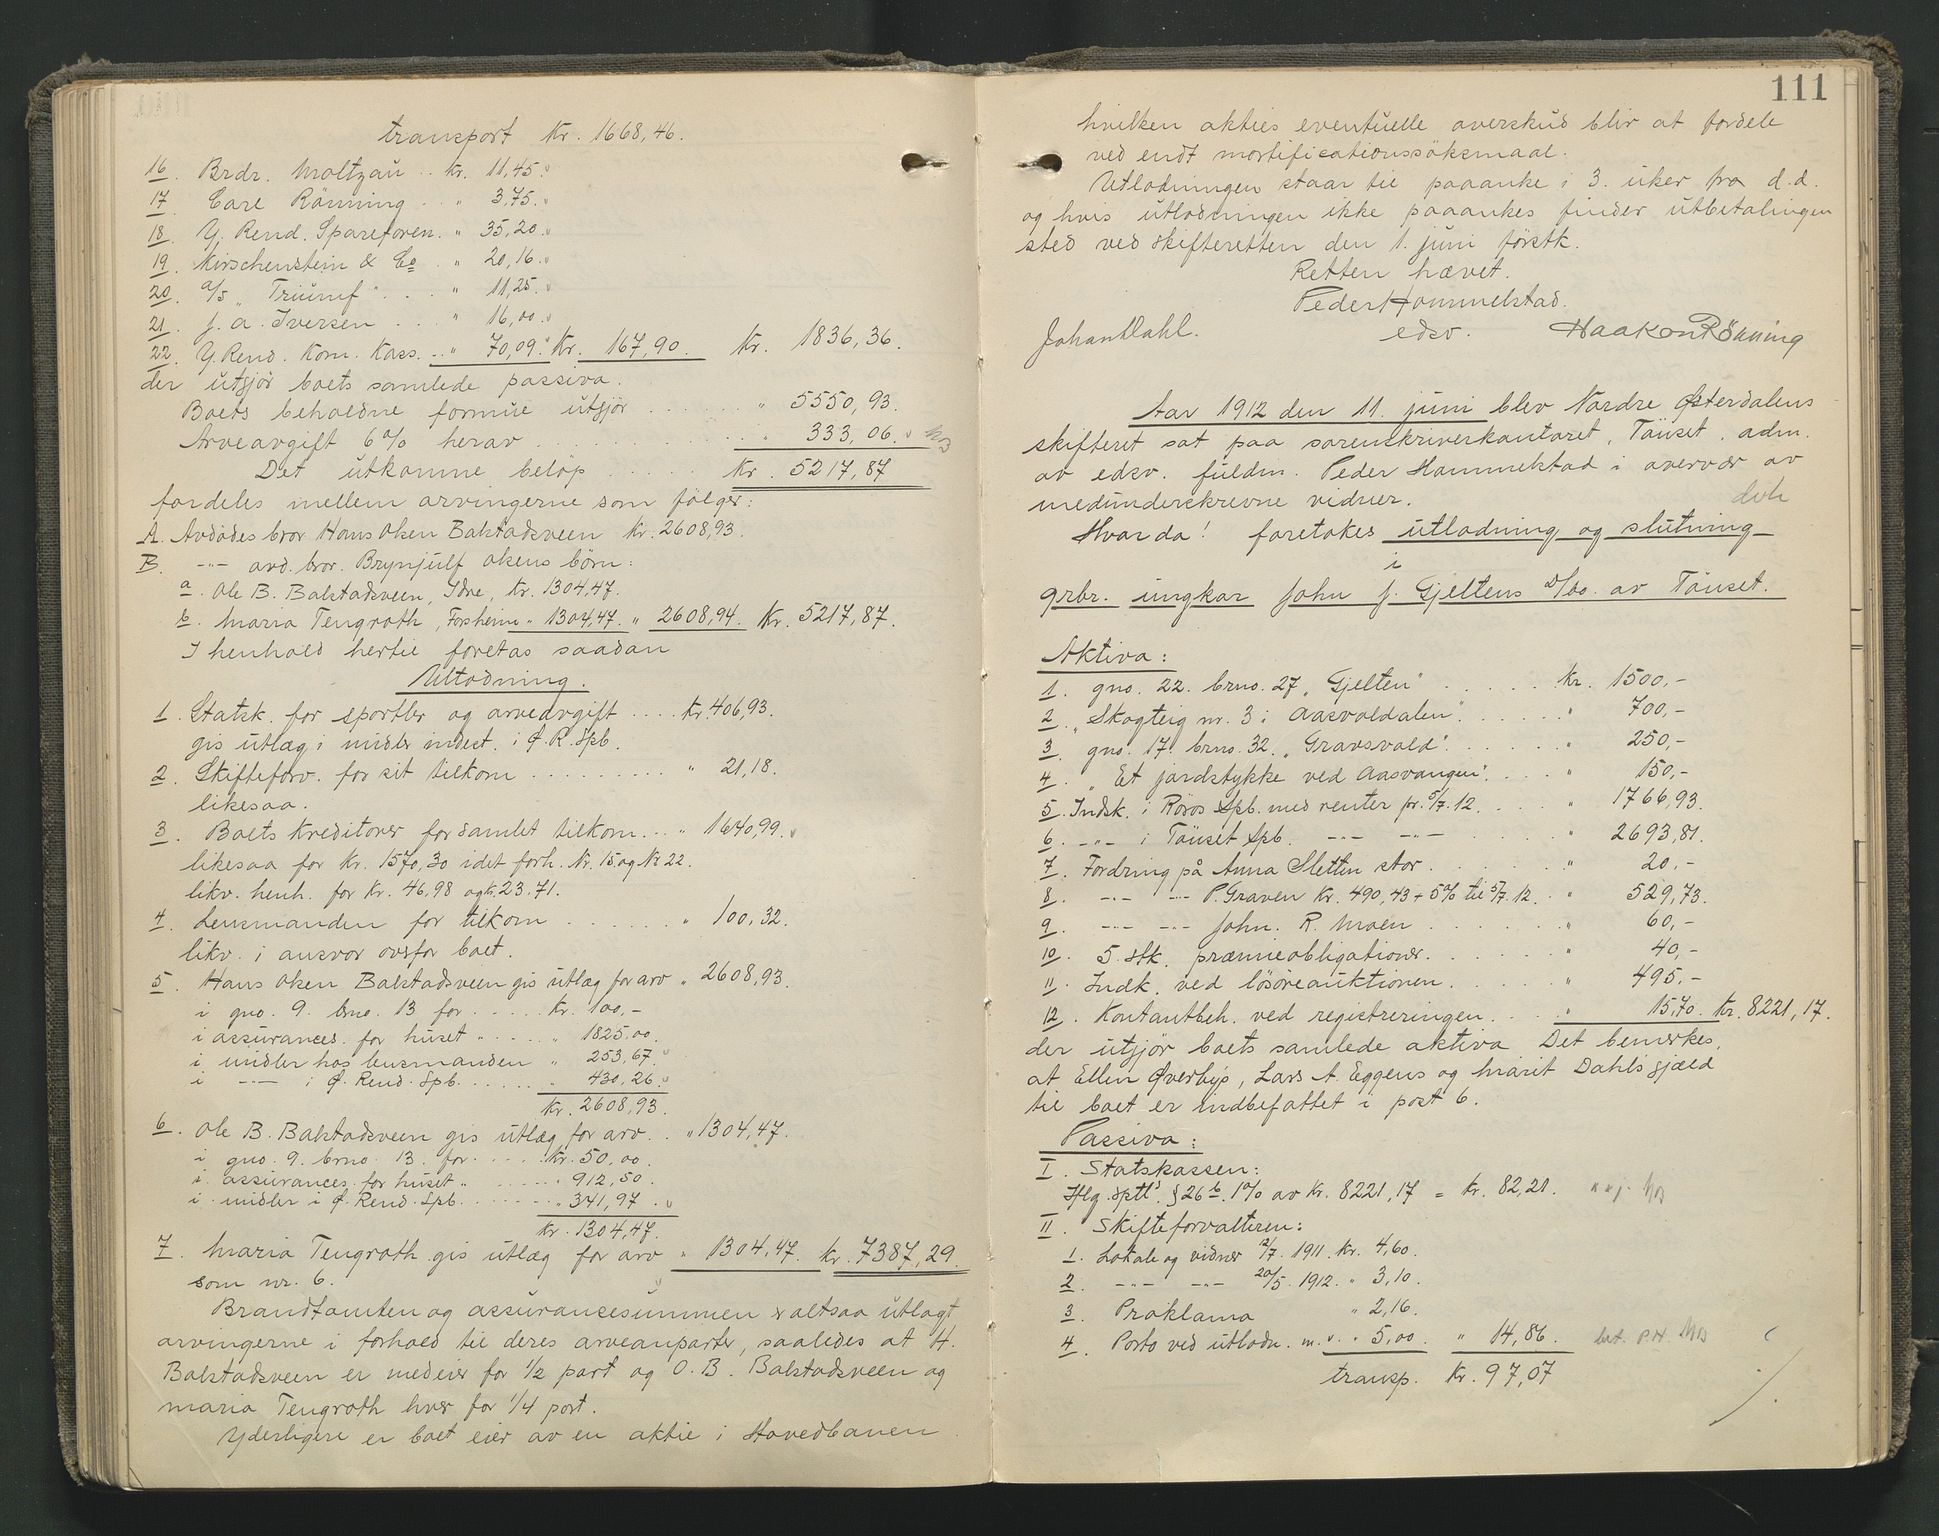 transport Kr. 1668,46.
16. Brdr. Moltzau .. Kr. 11,45.
17. Carl Rönning . . . " 3,75.
18. Y. Rend. Spareforen. " 35,20.
19. Kirschenstein & Co . " 20,16.
20. A/S „Triumf" . . . " 11,25.
21. J. A. Iversen . . . " 16,00.
22. Y. Rend. Kom. Kass. .. " 70,09. Kr. 167,90. Kr. 1836,36.
der utgjör boets samlede passiva.
Boets beholdne formue utgjör . . . . . . " 5550,93.
Arveavgift 6% herav . . . . . . . . . . " 333,06.
Det utkomne belöp . . . . . Kr. 5217,87
fordeles mellem arvingerne som fölger:
A. Avdödes bror Hans Oken Bakstadsveen Kr. 2608,93.
B. -"- avd. bror. Brynjulf Okens börn:
a. Ole B. Bakstadsveen, Idre, Kr. 1304,47.
b. Maria Tengroth, Forsheim " 1304,47. " 2608,94. Kr. 5217,87.
I henhold hertil foretas saadan
Utlodning.
1. Statsk. for sportler og arveavgift .... Kr. 406,93.
gis utlæg i midler indest. i Ø. R. Spb.
2. Skifteforv. for sit tilkom . . . . . . . . . " 21,18.
likesaa.
3. Boets kreditorer for samlet tilkom. .. " 1640,99.
likesaa for Kr. 1570,30 idet forh. Nr. 15 og Nr. 22.
likv. henh. for Kr. 46,98 og Kr. 23,71.
4. Lensmanden for tilkom . . . . . . " 100,32.
likv. i ansvar overfor boet.
5. Hans Oken Bakstadsveen gis utlæg for arv " 2608,93.
i gno. 9. brno. 13 for . . . . . Kr. 100,-
i assurances. for huset " . . . . " 1825,00.
i midler hos lensmanden " 253,67.
i -"- i Ø. Rend. Spb. . . . . . " 430,26.
Kr. 2608,93.
6. Ole B. Bakstadsveen gis utlæg for arv. . " 1304,47.
i gno. 9. brno. 13. for . . . . . Kr. 50,00.
i assurances. for huset " . . . . . " 912,50.
i midler i Ø. Rend. Spb. . . . . . " 341,97.
Kr. 1304,47.
7. Maria Tengroth gis utlæg for arv " 1304,47. Kr. 7387,29.
som nr. 6.
Brandtomten og assurancesummen er altsaa utlagt
arvingerne i forhold til deres arveanparter, saaledes at H.
Bakstadsveen er medeier for 1/2 part og O. B. Bakstadsveen og
Maria Tengroth hver for 1/4 part.
Yderligere er boet eier av en aktie i Hovedbanen
111
hvilken akties eventuelle overskud blir at fordele
ved endt mortificationssöksmaal.
Utlodningen staar til paaanke i 3. uker fra d.d.
og hvis utlodningen ikke paaankes finder utbetalingen
sted ved skifteretten den 1. juni førstk.
Retten hævet.
Peder Hommelstad.
Johan Dahl. edsv. Haakon Rönning
Aar 1912 den 11. juni blev Nordre Østerdalens
skifteret sat paa sorenskriverkontoret, Tönset, adm.
av edsv. fuldm. Peder Hommelstad i overvær av
medunderskrevne vidner.
Hvorda! foretokes utlodning og slutning
i
grbr. ungkar John J. Gjeltens D/bo. av Tönset.
Aktiva:
1. gno. 22. brno. 27 „Gjelten" . . . . . Kr. 1500,-
2. „Skogteig nr. 3 i Aasvoldalen". . . . . . " 700,-
3. gno. 17. brno. 32. „Gravsvold". . . . . . " 250,-
4. „Et jordstykke ved Aasvangen". . . . " 150,-
5. Indsk. i Röros Spb. med renter pr. 5/7.12. . . . " 1766,93.
6. -"- i Tönset Spb. -"- -"- . . . . " 2693,81.
7. Fordring på Anna Sletten stor. . . . . " 20,-
8. -"- -"- P. Graven Kr. 490,43 + 5% til 5/7.12. . " 529,73.
9. -"- -"- John. R. Moen . . . . . . " 60,-
10. 5. stk. præmieobligationer. . . . . . . " 40,-
11. Indk. ved lösöreauktionen. . . . . . " 495,-
12. Kontantbeh. ved registreringen. . . . " 15,70. Kr. 8221,17.
der utgjör boets samlede aktiva. Det bemerkes,
at Ellen Øverbys, Lars A. Eggens og Marit Dahls gjæld
til boet er indbefattet i post 6.
Passiva:
I. Statskassen:
Hlg. sptl. § 26 b. 1% av Kr. 8221,17 = Kr. 82,21.
II. Skifteforvalteren:
1. Lokale og vidner 12/7. 1911. Kr. 4,60.
2. -"- -"- 20/5. 1912. " 3,10.
3. Proklama " 2,16.
4. Porto ved utlodn. m. v. " 5,00. " 14,86.
transp. Kr. 97,07